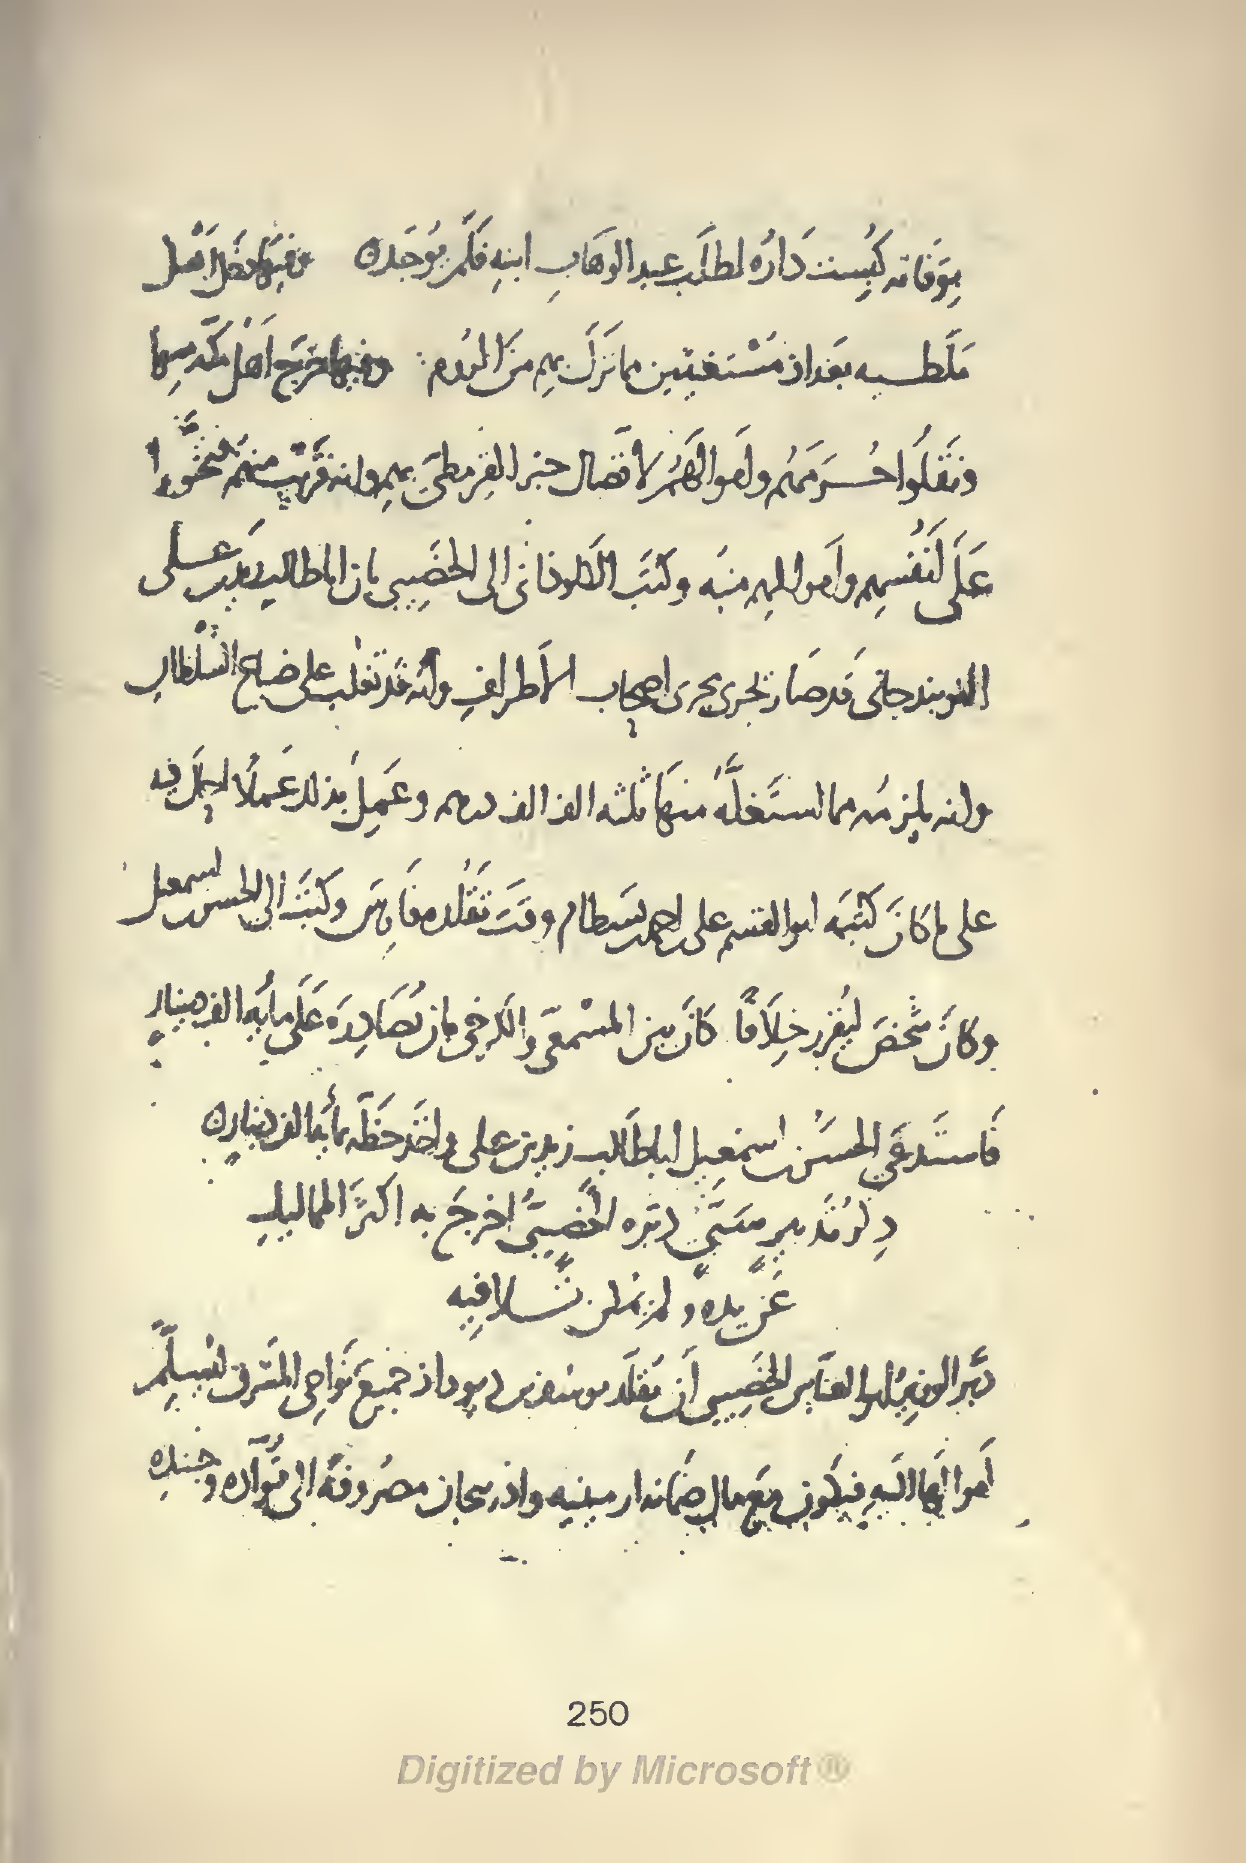 بوفاته كُبِست دَارُه لطلَب عبد الوهَاب ابنِهِ فلَم يُوجَد ٥ وفيها دخل اهل
مَلَطـيه بغداذ مُسْتغيثين مما نزَلَ بهم منَ الرُوم ∴ وفيها خرَج اهْل مكّه منها
ونَقَلوا حُـرَمَهُم وامَوالَهُمْ لاتصال خبر القِرمطىّ بهم وانه قَرُبَ منهم فتخَوّفوا
عَلَى انَفُسِهِم وامَوالهم منه وكتَبَ الكلوذانى الى الخصَيبى بان اباطالب زيد بن عـلـى
النوبندجانى قَد صَار يجرى مجرى اصحاب الاطراف وانه قد تغلب على ضياع السُلطان
وانه يلزمُه مما استَغلَّهُ منهَا ثلثه الف الف درهم وعَمِلَ بذلك عَملًا احال فيه
على ما كانَ كتبَه ابو القسم على بن احمد بن بسطام وقتَ تقَلُده فَارسَ وكتَبَ الى الحسن بن اسمعيل
وكانَ شَخصَ ليُقرر خِلَافًا كانَ بين المسْمعى والكرخى بان يُصَادِرَه عَلَى مايه الف دينار
فَاستَدعَى الحسَن بن اسمعيل اباطالب زيد بن على واخذ خطّه بمايه الف دينار ٥
ذِكرُ تَدبيرٍ سَيّئٍ دبّره الخصيبىُّ اخرجَ به اكثرَ المماليك
عَن يده ولم يمكن تـلافيه
دَبّر الوزيرُ ابو العبّاس الخصَيبى أن يقلد يوسف بن ديوداذ جميعَ نوَاحى المَشرق ليسلّم
اَموالَها اليَه فيكون مع مال ضمَانه ارمينيه واذربيجان مصرُوفَة الى قُوّاده وجنده
250
Digitized by Microsoft®